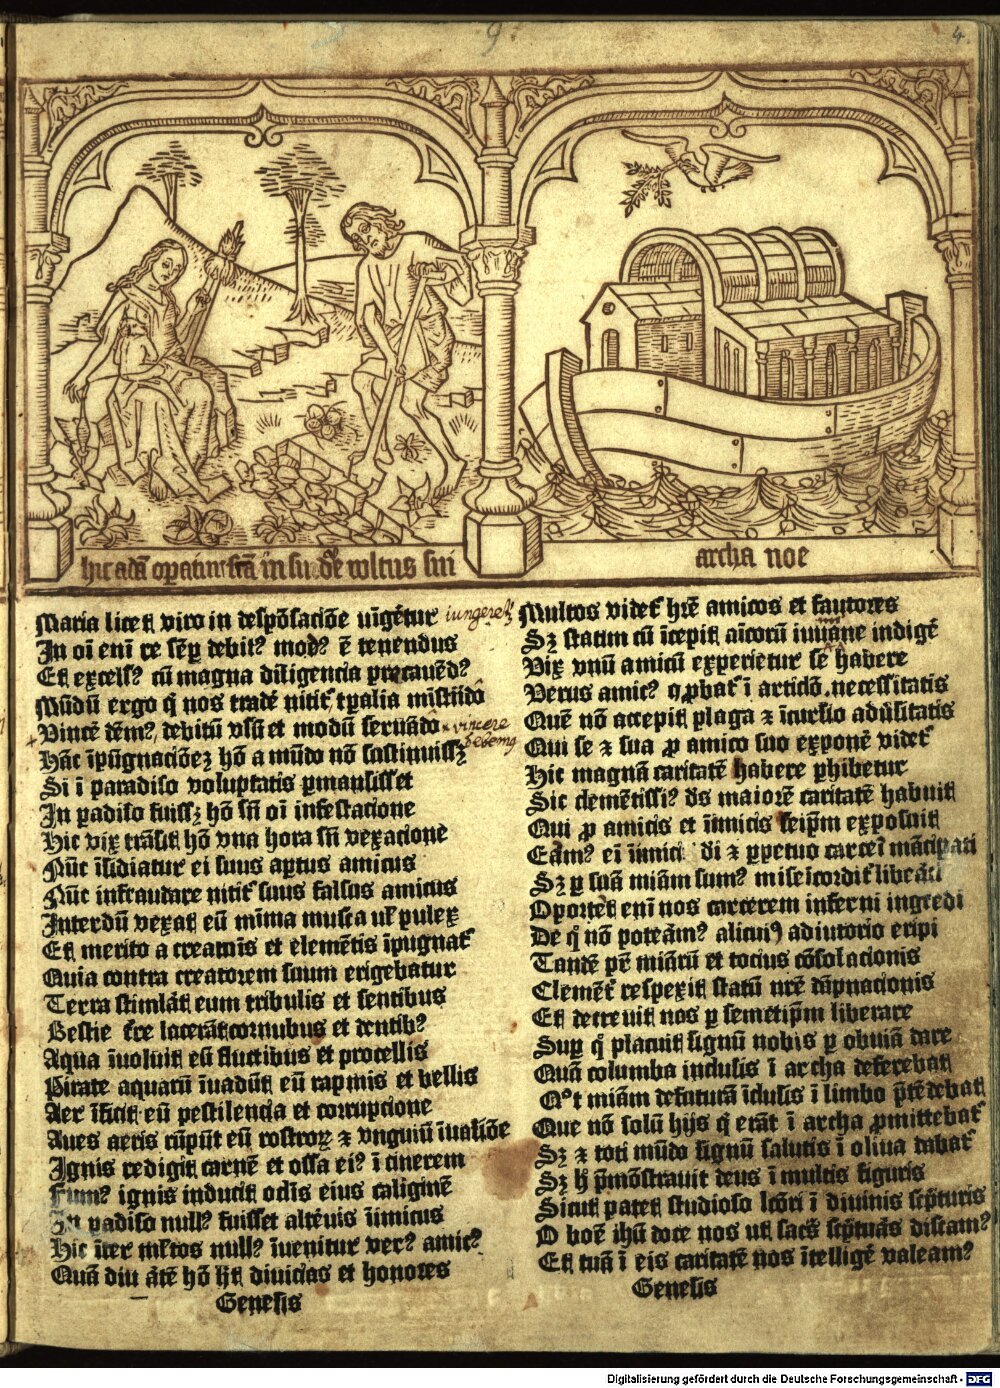 9.
4.
hic adā opatur trā in su doꝛe wltus sui
archa noe
Maria licet viro in despōsaciōe uīgētur iungeret
In oī enī re sēp debitꝰ modꝰ ē tenendus
Et excessꝰ cū magna diligencia precauēdꝰ
Mūdū ergo q nos tradē nitit tpalia mīstrādo
Vincē dēmꝰ debitū vsū et modū seruādo vincere debemꝰ
Hāc īpūgnaciōeꝫ hō a mūdo nō sostinuissꝫ
Si ī paradiso voluptatis pmansisset
In padiso fuissꝫ hō sn̄ oī infestacione
Hic vix trāsit hō vna hora sn̄ vexacione
Nūc īsidiatur ei suus aptus amicus
Nūc infraudare nitit suus falsus amicus
Interdū vexat eū mīma musca ul pulex
Et merito a creatuīs et elemētis īpugnat
Quia contra creatorem suum erigebatur
Terra stimlāt eum tribulis et sentibus
Bestie tre lacerāt cornubus et dentibꝰ
Aqua īuoluit eū fluctibus et procellis
Pirate aquarū īuadūt eū rapinis et bellis
Aer īficit eū pestilencia et corrupcione
Aues aeris rūpūt eū rostroꝝ ⁊ vnguiū īuasiōe
Ignis redigit carnē et ossa eiꝰ ī cinerem
Fumꝰ ignis inducit oclis eius caliginē
In padiso nullꝰ fuisset altēuis īimicus
Hic īter mltos nullꝰ īuenitur verꝰ amicꝰ
Quā diu āte hō hȝ diuicias et honores
Genesis
Multos videt hrē amicos et fautores
Sꝫ statim cū īcepit aīcorū iuuāne indigē
Vix vnū amicū experietur se habere
Verus amicꝰ ꝓbat ī articlo necessitatis
Quē nō accepit plaga ⁊ īcursio adūsitatis
Qui se ⁊ sua ꝓ amico suo exponē videt
Hic magnā caritatē habere phibetur
Sic clemētissiꝰ ds maiorē caritatē habuit
Qui ꝓ amicis et īimicis seipm exposuit
Eāmꝰ eī īimici di ⁊ ppetuo carceī mācipati
Sꝫ p suā miām sumꝰ miseīcordit libeāti
Oportet enī nos carcerem inferni ingredi
De q nō poteāmꝰ alicuiꝰ adiutorio eripi
Tandē pr̄ miārū et tocius cōsolacionis
Clemēt respexit statū nrē dāpnacionis
Et decreuit nos p semetipm liberare
Sup q placuit signū nobis p obuiā dare
Quā columba inclusis ī archa deferebat
Qꝛ miām defuturā īclusis ī limbo ptēdebat
Que nō solū hijs q erāt ī archa pmittebat
Sꝫ ⁊ toti mūdo signū salutis ī oliua dabat
Sꝫ h pmōstrauit deus ī multis figuris
Sicut patet studioso lcōri ī diuinis scpturis
O boē ihū doce nos ut sacs scpturas discamꝰ
Et tuā ī eis caritatē nos ītelligē valeamꝰ
Genesis
Digitalisierung gefördert durch die Deutsche Forschungsgemeinschaft - DFG